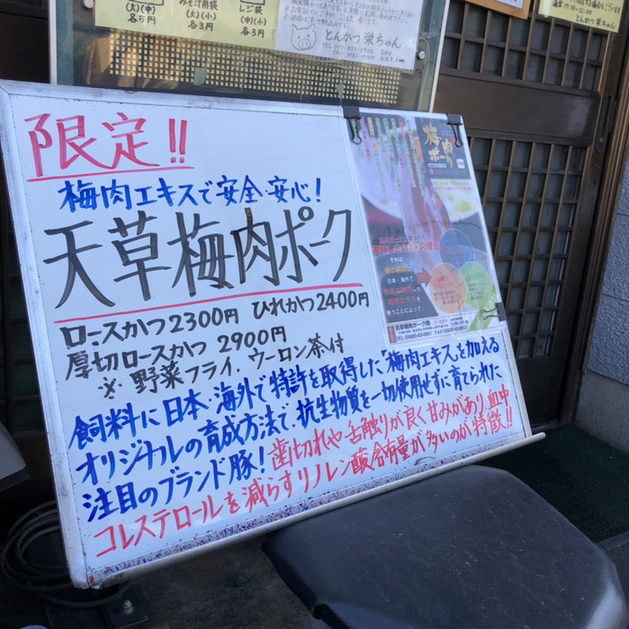 (大)(中)
各5円
みそ汁用袋
(大)(小)
各3円
レジ袋
(中)(小)
各3円
とんかつ 栄ちゃん
限定!!
梅肉エキスで安全・安心!
天草梅肉ポーク
ロースかつ2300円 ひれかつ2400円
厚切ロースかつ 2900円
※ 野菜フライ、ウーロン茶付
飼料に日本・海外で特許を取得した「梅肉エキス」を加える
オリジナルの育成方法で、抗生物質を一切使用せずに育てられた
注目のブランド豚! 歯切れや舌触りが良く甘みがあり血中
コレステロールを減らすリノレン酸含有量が多いのが特徴!!
梅肉
ポーク
それは
日本・海外で
天草梅肉ポーク㈱